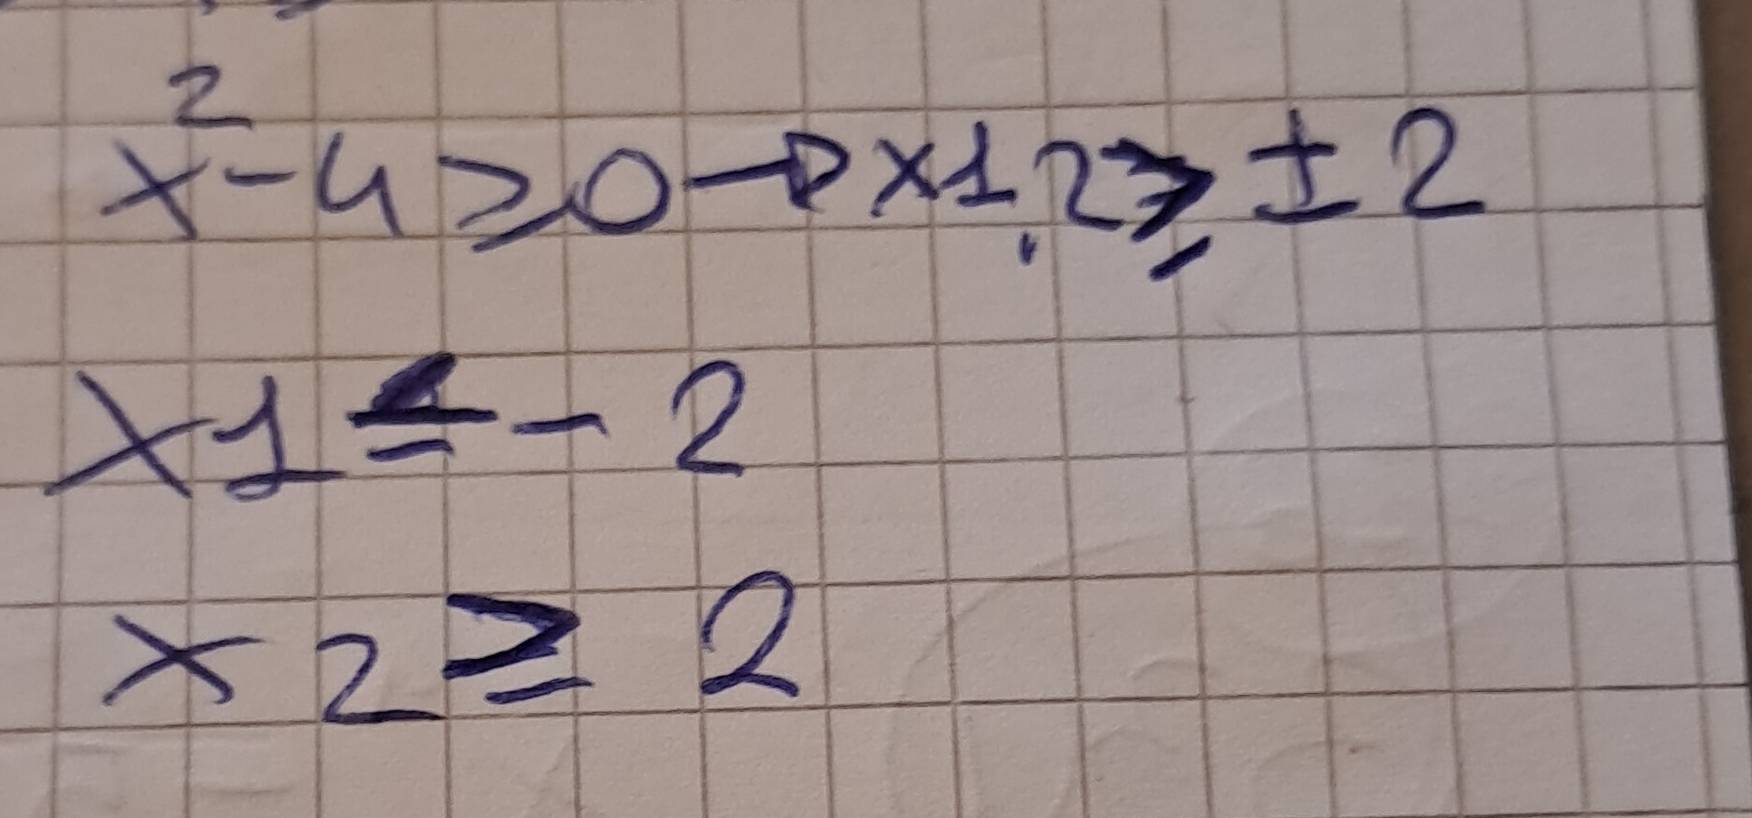 x² - 4 ≥ 0 → x1,2 ≥ ± 2
x1 ≤ - 2
x2 ≥ 2